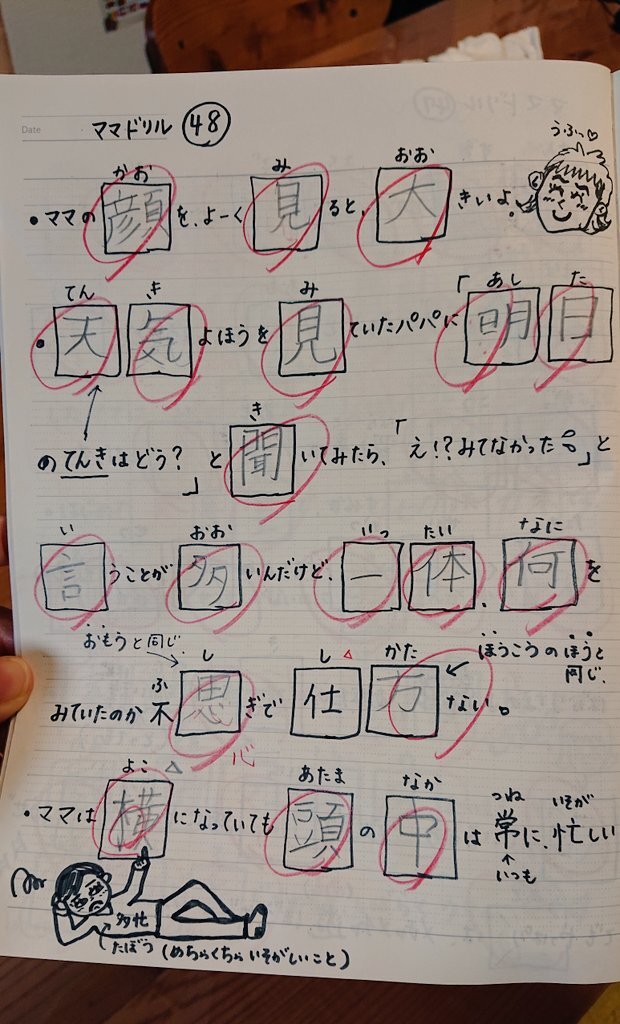 Date
ママドリル 48
うふっ♡
かお み おお
・ママの顔を、よーく見ると、大きいよ。
てん き み あし た
・天気よほうを見ていたパパに「明日
き
のてんきはどう？」と聞いてみたら、「え!?みてなかった」と
い おお いっ たい なに
言うことが多いんだけど、一体、何を
おもうと同じ。 し し △ かた ほうこうのほうと同じ。
ふ
みていたのか不思ぎで仕方ない。
心
よこ △ あたま なか つね いそが
・ママは横になっていても頭の中は常に、忙しい
いつも
多忙
たぼう（めちゃくちゃいそがしいこと）